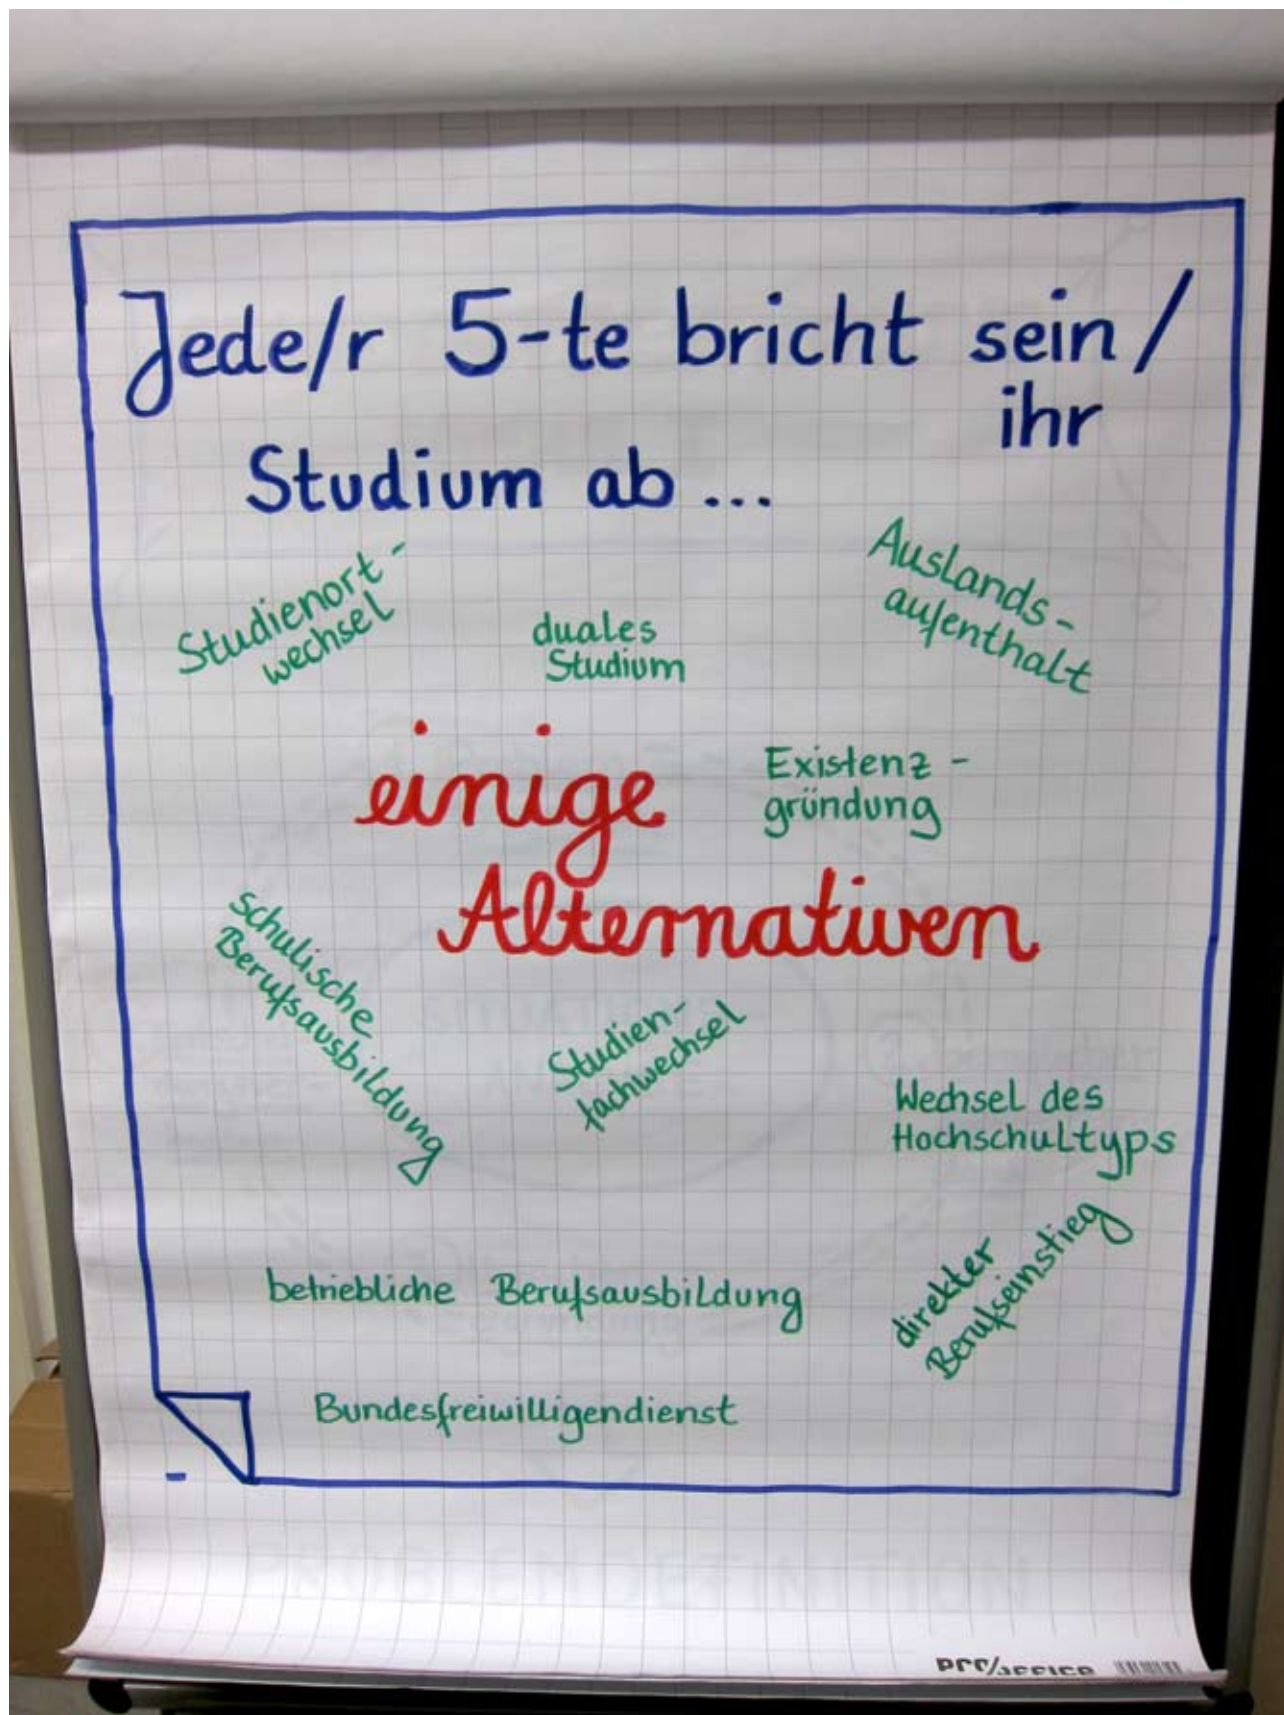 Jede/r 5-te bricht sein /
ihr
Studium ab ...
Studienort-
wechsel
duales
Studium
Auslands-
aufenthalt
einige
Existenz-
gründung
Alternativen
schulische
Berufsausbildung
Studien-
fachwechsel
Wechsel des
Hochschultyps
betriebliche Berufsausbildung
direkter
Berufseinstieg
Bundesfreiwilligendienst